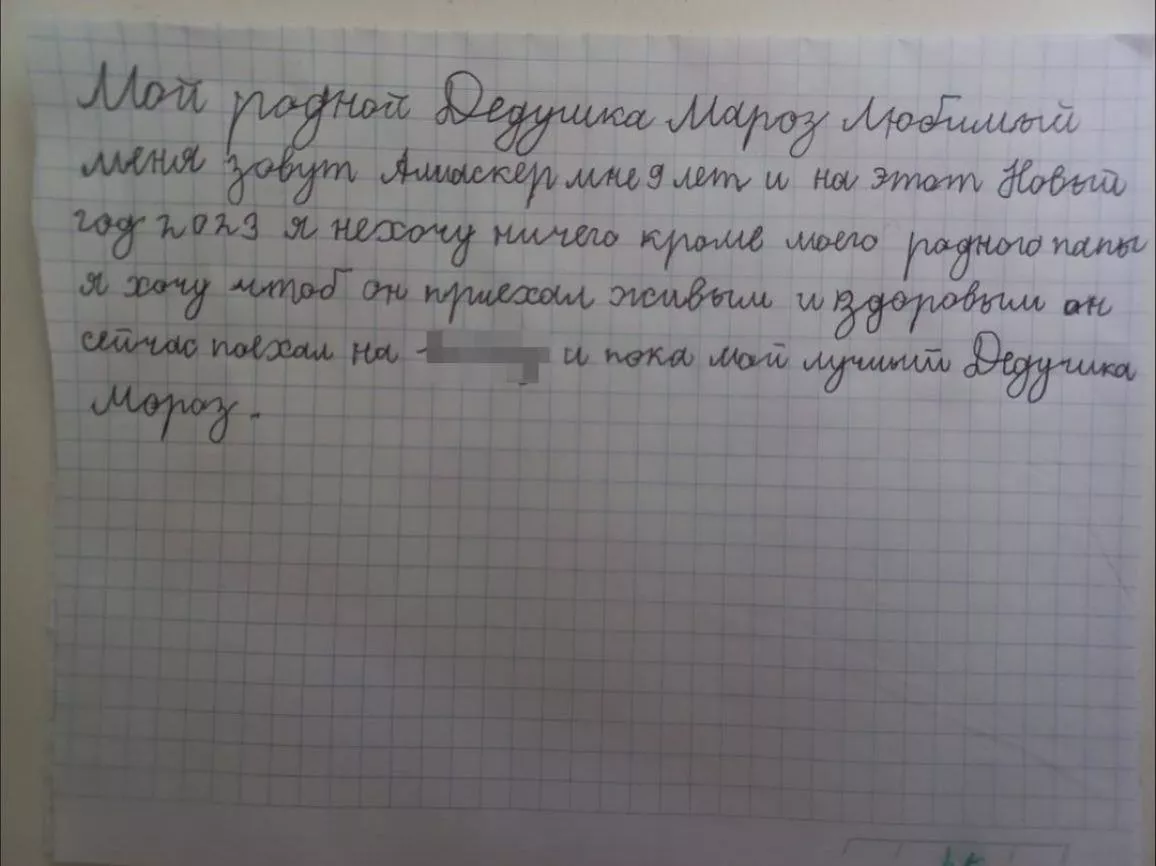 Мой родной Дедушка Мароз Любимый
меня зовут Алиаскер мне 9 лет и на этот Новый
год 2023 я нехочу ничего кроме моего родного папы
я хочу чтоб он приехал живым и здоровым он
сейчас поехал на и пока мой лучший Дедушка
Мороз.